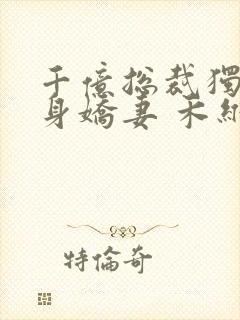 千億總裁獨
身嬌妻 木
特倫奇